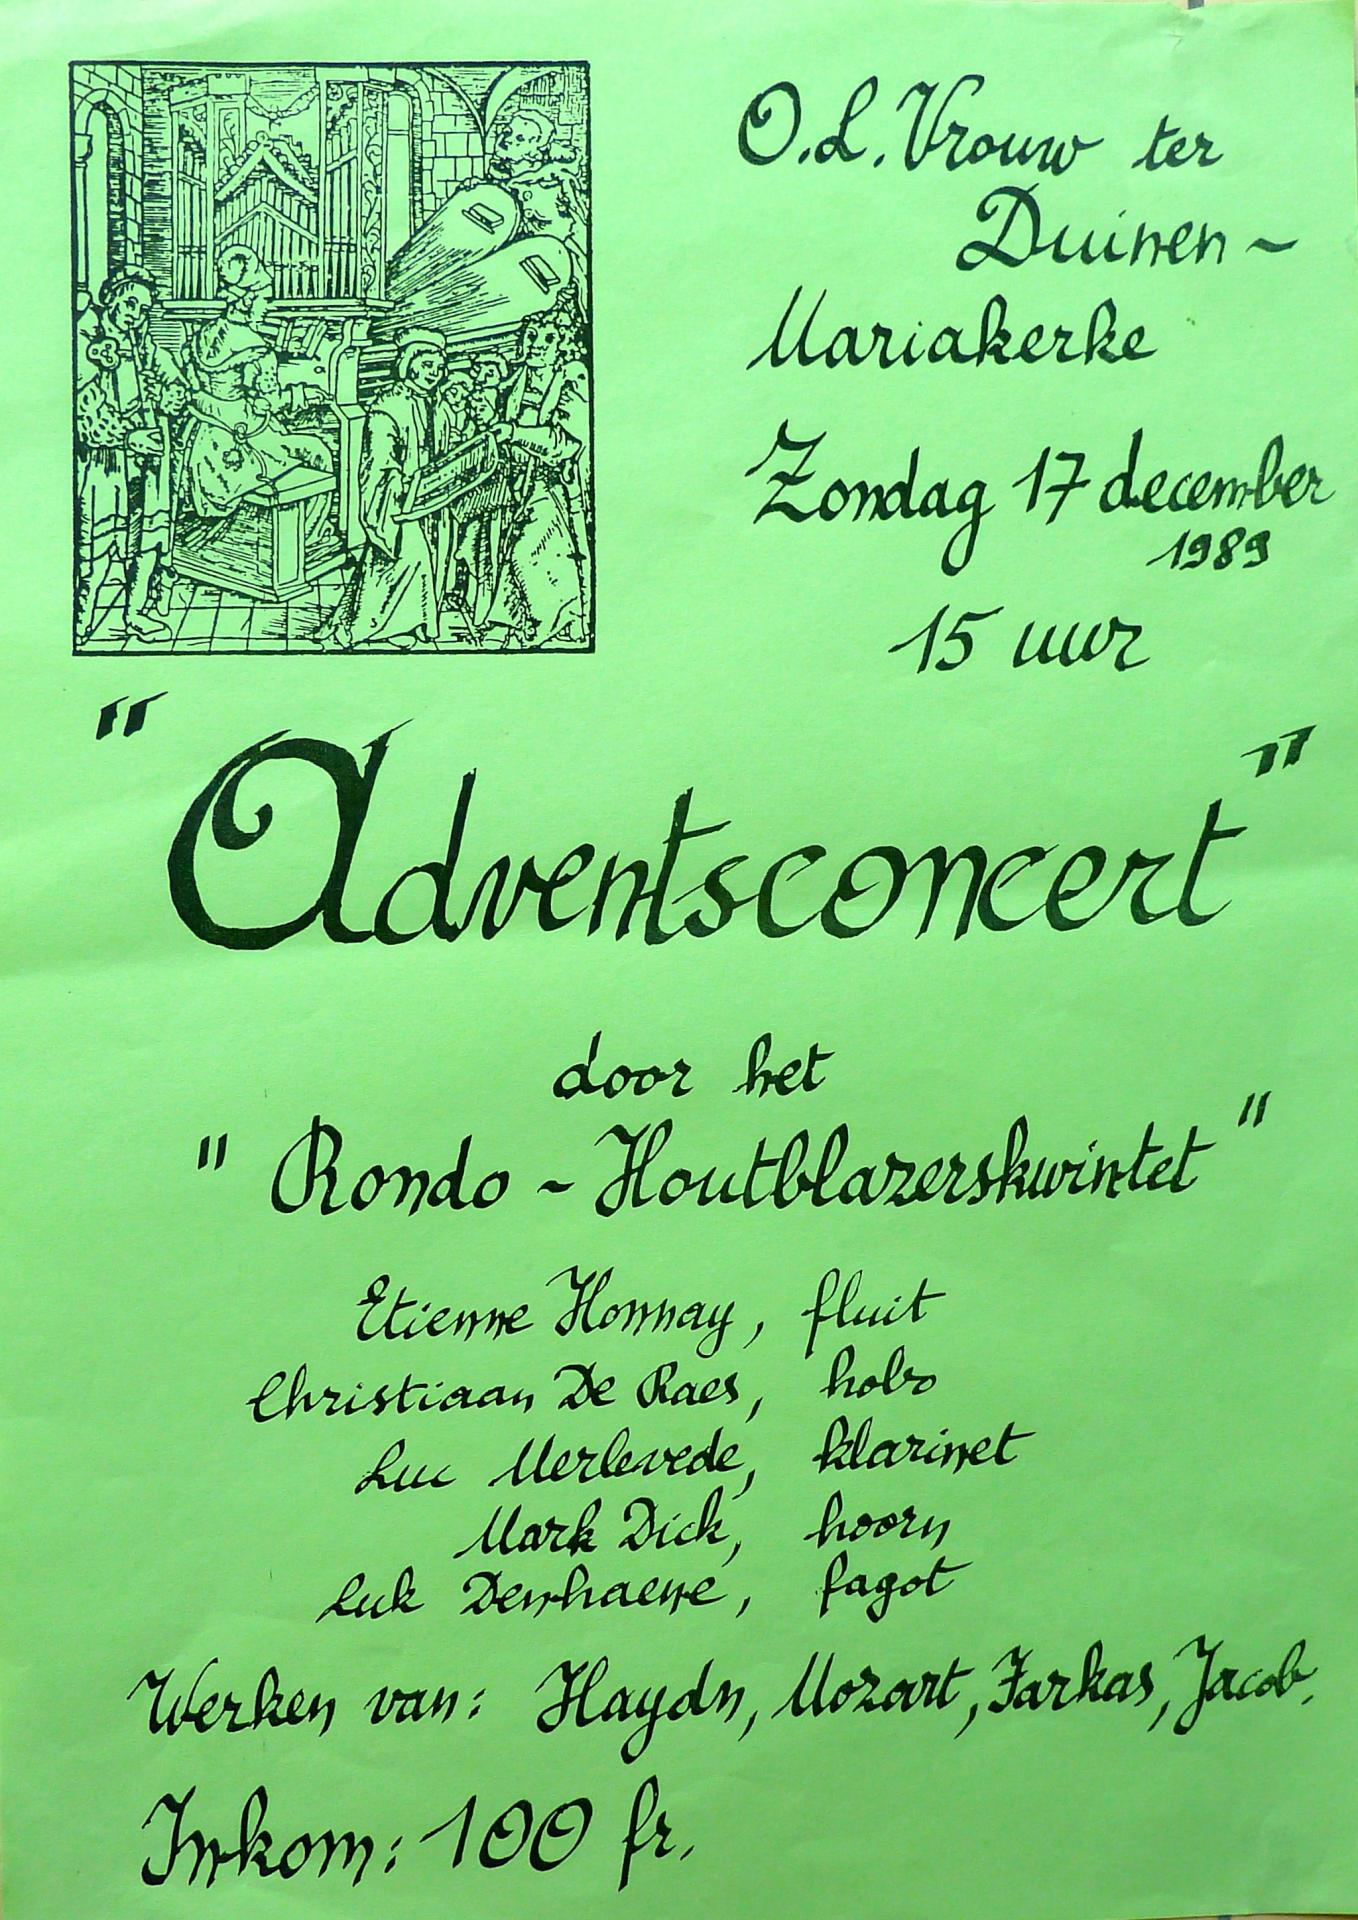 O.L. Vrouw ter
Duinen -
Mariakerke
Zondag 17 december
1989
15 uur
"Adventsconcert"
door het
"Rondo - Houtblazerskwintet"
Etienne Honnay, fluit
Christiaan De Raes, hobo
Luc Merlevede, klarinet
Mark Dick, hoorn
Luk Denhaene, fagot
Werken van: Haydn, Mozart, Farkas, Jacob.
Inkom: 100 fr.